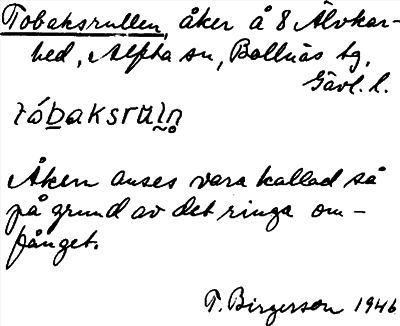 Tobaksrullen, åker å 8 Älvkar-
hed, Alfta sn, Bollnäs tg,
Gävl. l.
tóbaksruln̥
Åkern anses vara kallad så
på grund av det ringa om-
fånget.
T. Birgerson 1946